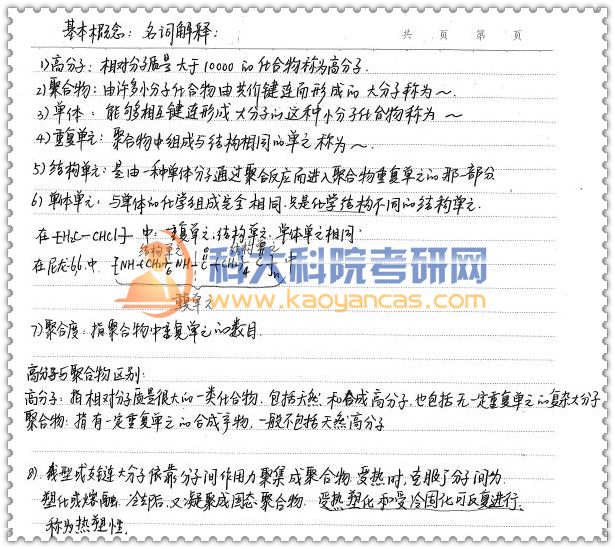 基本概念：名词解释：
共 页 第 页
1)高分子：相对分子质量大于10000的化合物称为高分子.
2)聚合物：由许多小分子化合物由共价键连而形成的大分子称为～.
3)单体：能够相互键连形成大分子的这种小分子化合物称为～
4)重复单元：聚合物中组成与结构相同的单元称为～.
5)结构单元：是由一种单体分子通过聚合反应而进入聚合物重复单元的那一部分
6)单体单元：与单体的化学组成完全相同.只是化学结构不同的结构单元.
在-[H2C-CHCl]-中：重复单元,结构单元,单体单元相同.
结构单元 结构单元
在尼龙-66.中. 中
重复单元
科大科院考研网
www.kaoyancas.com
7)聚合度：指聚合物中重复单元的数目.
高分子与聚合物区别：
高分子：指相对分子质量很大的一类化合物.包括天然和合成高分子.也包括无一定重复单元的复杂大分子
聚合物：指有一定重复单元的合成产物.一般不包括天然高分子
8).线型或支链大分子依靠分子间作用力聚集成聚合物.受热时.克服了分子间力
塑化或熔融.冷却后又凝聚成固态聚合物.受热塑化和受冷固化可反复进行.
称为热塑性.